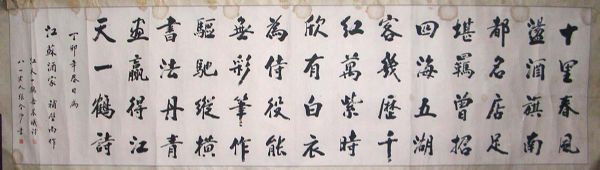 十里春風
盪酒旗南
都名店足
堪羈曾招
四海五湖
客幾歷千
紅萬紫時
欣有白衣
為侍役能
無彩筆作
驅馳縱橫
書法丹青
畫贏得江
天一鶴詩
丁卯年春日為
江蘇酒家補壁而作
江天一鶴
八一叟人張書